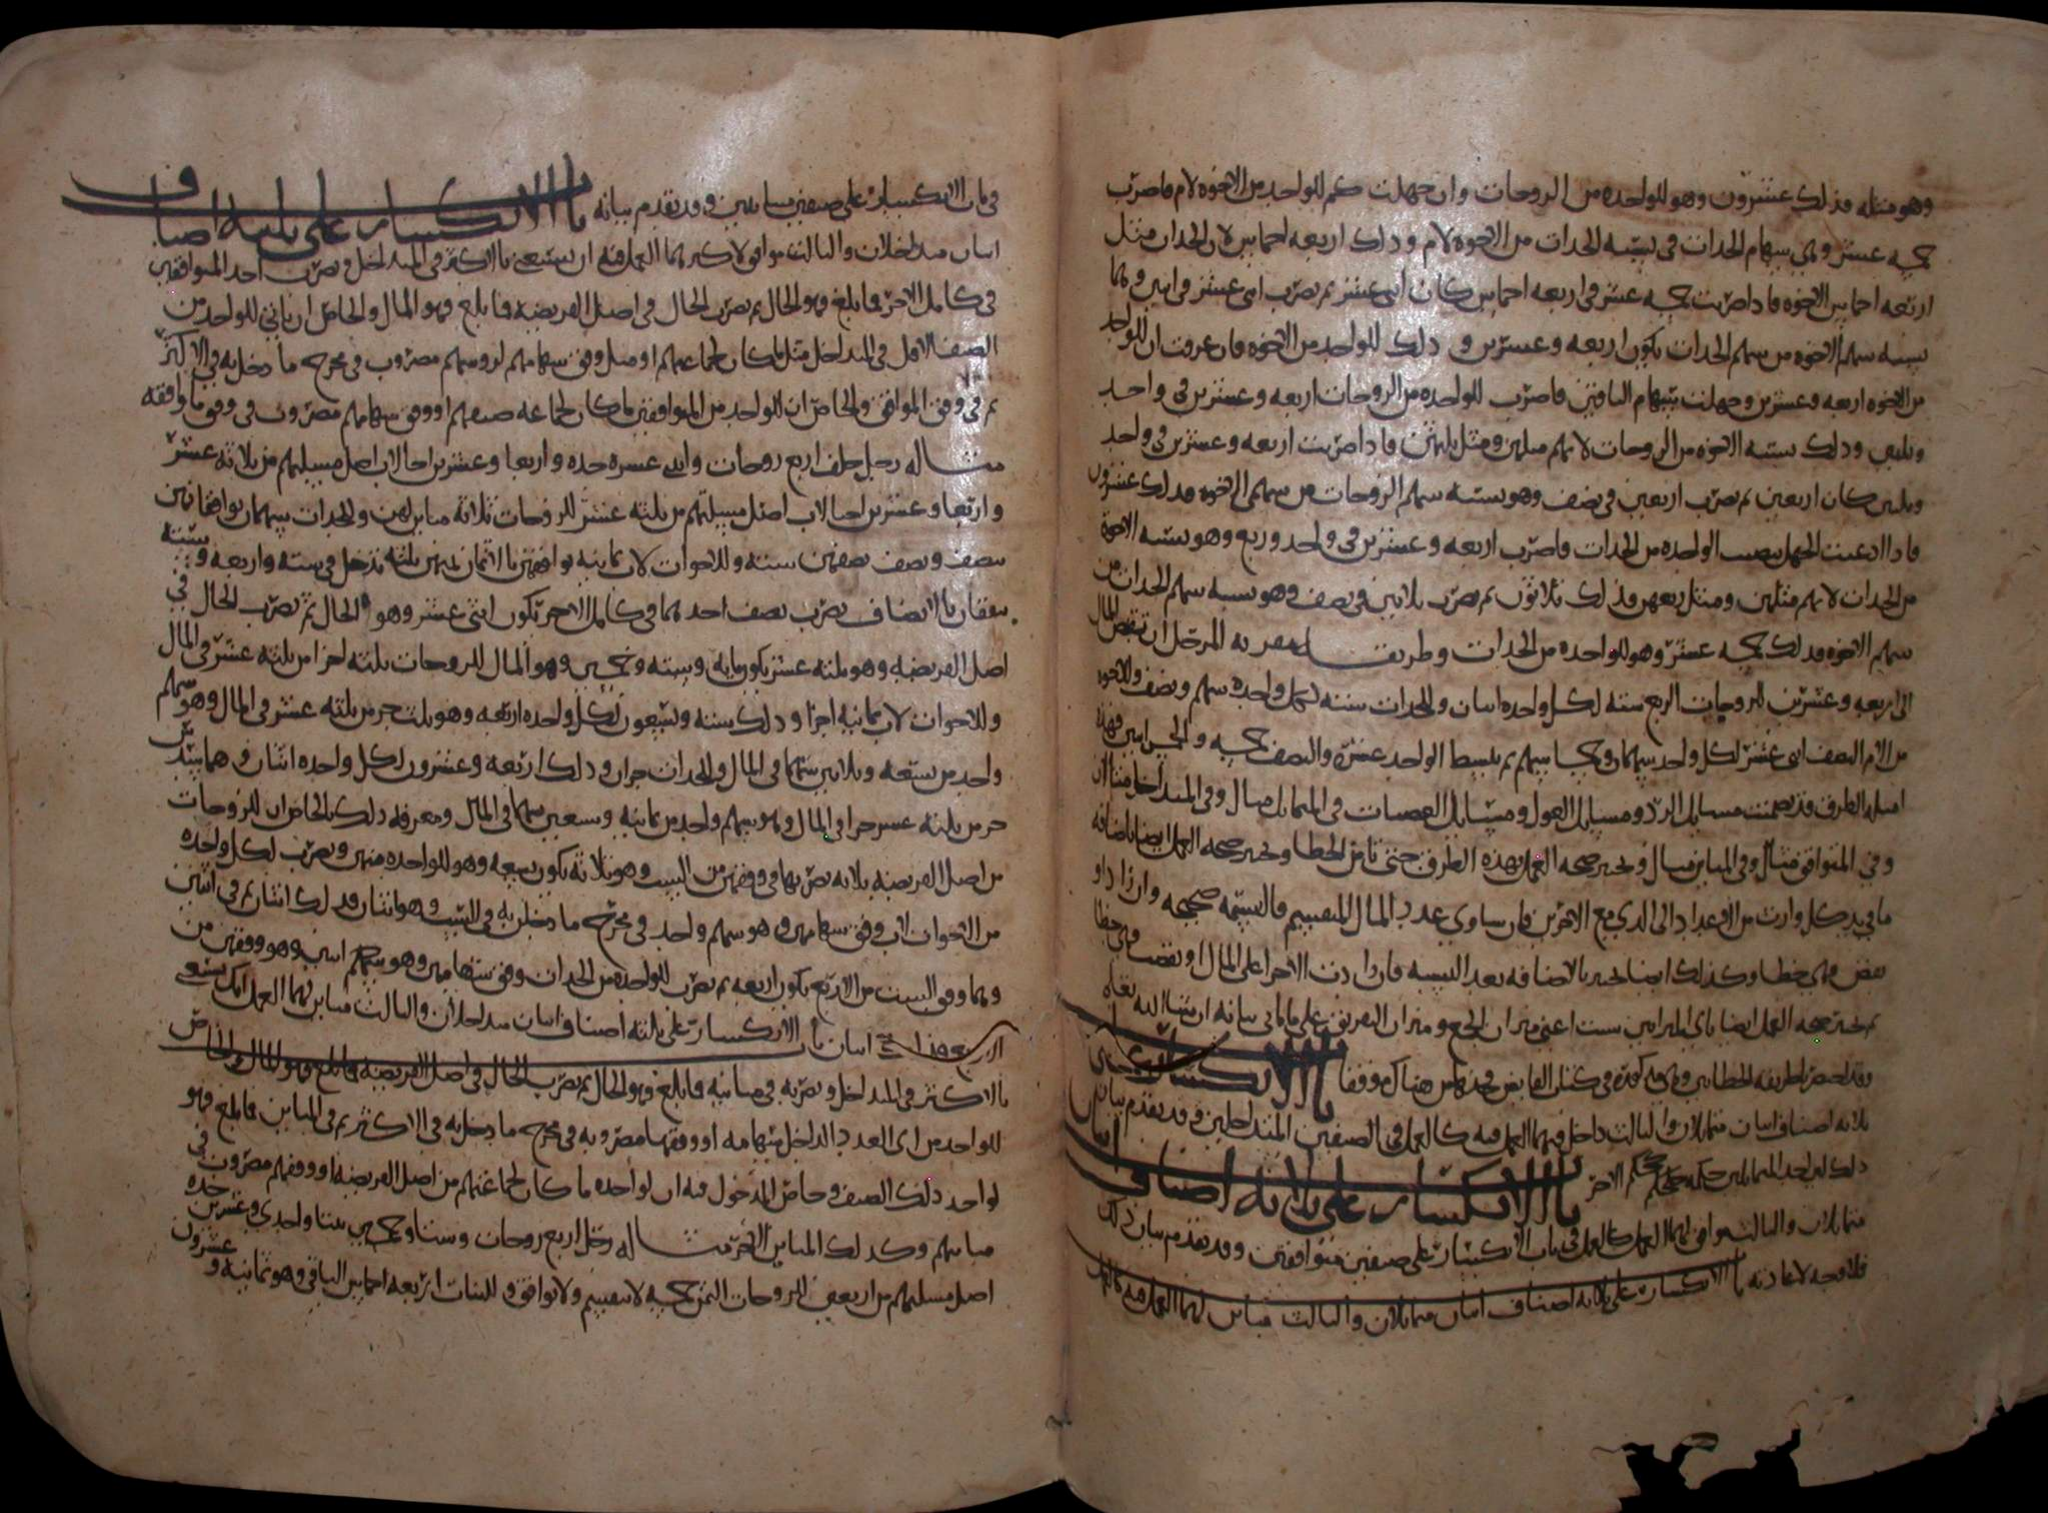 وهو مثله فذلك عشرون وهو للواحده من الزوجات وان جهلت كم للواحد من الاخوه لام فاضرب
خمسه عشر وهي سهام الجدات في ستة الجدات من الاخوه لام وذلك اربعه اخماس لان الجدات مثل
اربعه اخماس الاخوه فاذا ضربت خمسه عشر في اربعه اخماس كان اثني عشر ثم تضرب اثني عشر في اثنين وهما
نسبه سهم الاخوه من سهم الجدات يكون اربعه وعشرين وذلك للواحد من الاخوه فان عرفت ان للواحد
من الاخوه اربعه وعشرين وجهلت سهام الباقين فاضرب للواحده من الزوجات اربعه وعشرين في واحد
وثلثين وذلك نسبه الاخوه من الزوجات لانهم مثلهن ومثل ثلثيهن فاذا ضربت اربعه وعشرين في واحد
وثلثين كان اربعين ثم تضرب اربعين في نصف وهو نسبه سهم الزوجات من سهم الاخوه فذلك عشرون
فاذا ادعيت الجهل بنصيب الواحده من الجدات فاضرب اربعه وعشرين في واحد وربع وهو نسبه الاخوة
من الجدات لانهم مثلهن ومثل ربعهن فذلك ثلاثون ثم تضرب ثلاثين في نصف وهو نسبه سهم الجدات من
سهم الاخوه فذلك خمسه عشر وهو للواحده من الجدات وطريقـــــه
الى اربعه وعشرين للزوجات الربع سته لكل واحده اثنان وللجدات سته لكل واحده سهم ونصف وللاخوه
من الام النصف اثني عشر لكل واحد سهمان وخمسا سهم ثم تبسط الواحد عشره والنصف خمسه والخمس اثنين فهذه
امثله الطرق قد تضمنت مسايل الرد ومسايل العول ومسايل العصبات في المتماثل مثال وفي المتداخل مثالان
وفي المتوافق مثال وفي المباين مثال وتختبر صحه العمل بهذه الطرق حتى تامن الخطا وتختبر صحه العمل ايضا باضافه
ما في يد كل وارث من الاعداد الى الذي مع الاخرين فان ساوى عدد المال المنقسم فالقسمه صحيحه وان زاد او
نقص فهي خطا وكذلك ايضا تختبر بالاضافه بعد النسبه فان زادت الاجزا على المال او نقصت فهي خطا
ثم تختبر صحه العمل ايضا باي الميزانين شيت اعني ميزان الجمع وميزان التفريق على ما ياتي بيانه ان شا الله تعالى
باب الانكسار على
ثلاثه اصناف اثنان متماثلان والثالث داخل فيهما العمل فيه كالعمل في الصنفين المتداخلين وقد تقدم بيانه
ذلك لان احد المتماثلين حكمه حكم الاخر باب الانكسار على ثلاثه اصناف اثنان
متماثلان والثالث موافق لهما العمل كالعمل في باب الانكسار على صنفين متوافقين وقد تقدم بيان ذلك
فلا وجه لاعادته باب الانكسار على ثلاثه اصناف اثنان متماثلان والثالث مباين لهما العمل فيه كالعمل
في باب الانكسار على صنفين متباينين وقد تقدم بيانه باب الانكسار على ثلثه اصناف
اثنان متداخلان والثالث موافق لاكبرهما العمل فيه ان تستغني بالاكثر في المتداخل وتضرب احد المتوافقين
في كامل الاخر فما بلغ فهو الحال ثم تضرب الحال في اصل الفريضه فما بلغ فهو المال والخاص ان ياتي للواحد من
الصنف الاقل في المتداخل مثل ما كان لجماعتهم او مثل وفق سهامهم لروسهم مضروب في مخرج ما دخل به في الاكثر
ثم في وفق الموافق والخاص ان للواحد من المتوافقين ما كان لجماعه صنفهم او وفق سهامهم مضروب في وفق ما وافقه
مثـــاله رجل خلف اربع زوجات واثني عشره جده واربعا وعشرين اختا لاب اصل مسيلتهم من ثلاثه عشر
بنصف ونصف نصفهن سته وللاخوات لاب ثمانيه توافقهن بالاثمان ثمنهن ثلثه تدخل في سته واربعه وسته
يتفقان بالانصاف تضرب نصف احدهما في كامل الاخر تكون اثني عشر وهو الحال ثم تضرب الحال في
اصل الفريضه وهو ثلثه عشر يكون مايه وسته وخمسين وهو المال للزوجات ثلثه اجزا من ثلثه عشر في المال
وللاخوات لاب ثمانيه اجزا وذلك سته وتسعون لكل واحده اربعه وهو ثلث جز من ثلثه عشر في المال وهو سهم
واحد من تسعه وثلاثين سهما في المال وللجدات جزان وذلك اربعه وعشرون لكل واحده اثنان وهما سدس
جز من ثلثه عشر جزا في المال وهو سهم واحد من ثمانيه وسبعين سهما في المال ومعرفه ذلك بالخاص ان للزوجات
من اصل الفريضه ثلاثه تضربها في وفقهن من الست وهو ثلاثه يكون تسعه وهو للواحده منهن وتضرب لكل واحده
من الاخوات لاب وفق سهامهن وهو سهم واحد في مخرج ما دخلن به في الست وهو اثنان فذلك اثنان ثم في اثنين
وهما وفق الست من الاربع يكون اربعه ثم تضرب للواحده من الجدات وفق سهامهن وهو سهم
باب الانكسار على ثلثه اصناف اثنان متداخلان والثالث مباين لهما العمل انك تستغني
بالاكثر في المتداخل وتضربه في مباينه فما بلغ فهو الحال ثم تضرب الحال في اصل الفريضه فما بلغ فهو المال والخاص
للواحد من اي العدد الداخل سهامه او وفقها مضروبه في مخرج ما دخل به في الاكثر ثم في المباين فما بلغ فهو
لواحد ذلك الصنف وخاص المدخول فيه ان لواحده ما كان لجماعتهم من اصل الفريضه او وفقهم مضروب في
مباينهم وكذلك المباين الاخر مثـــاله رجل اربع زوجات وستا وخمسين بنتا واحدى وعشرين جده
اصل مسيلتهم من اربعين للزوجات الثمن خمسه لا تنقسم ولا توافق وللبنات اربعه اخماس الباقي وهو ثمانيه وعشرون